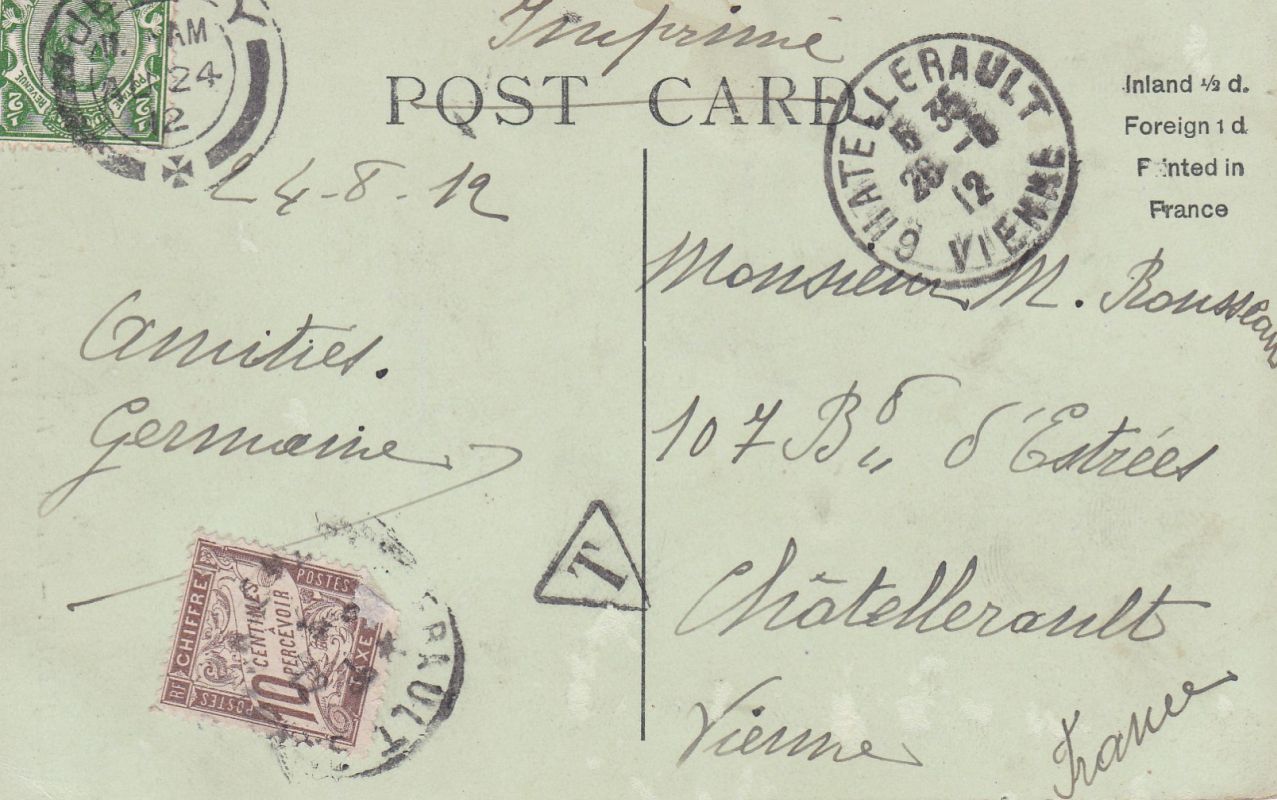 Imprimé
POST CARD
Inland ½ d.
Foreign 1 d
Printed in
France
AM
24
12
½ POSTAGE REVENUE ½
CHATELLERAULT
VIENNE
28
12
24-8-12
Amitiés.
Germaine
Monsieur M. Rousseau
107 Bd d'Estrées
Châtellerault
Vienne
France
T
RF CHIFFRE TAXE
POSTES
10 CENTIMES
À PERCEVOIR
POSTES
ERAULT